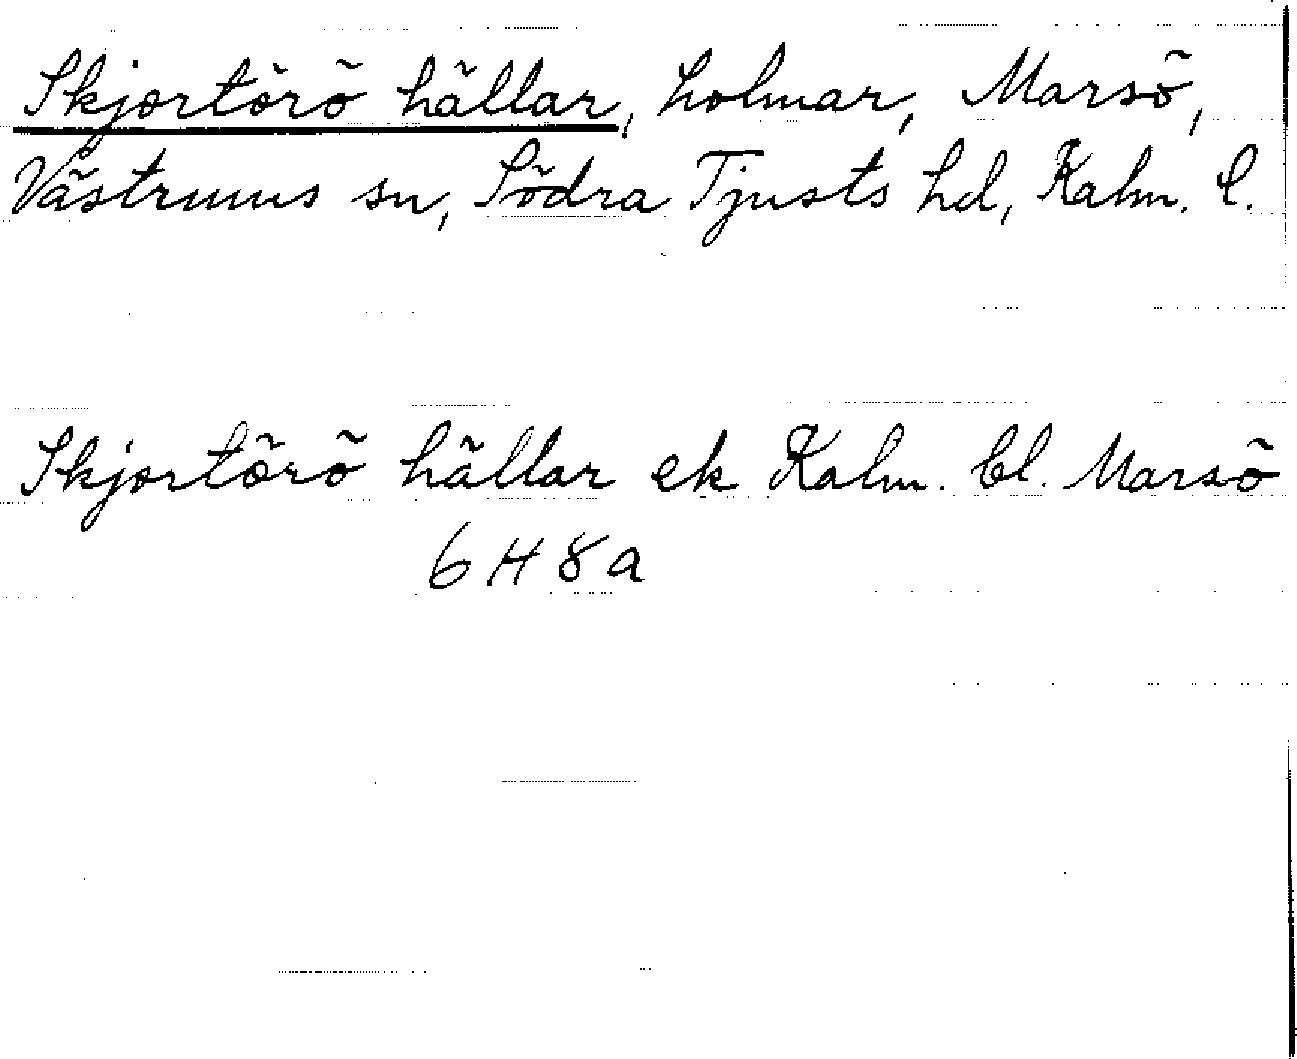 Skjortörö hällar, holmar, Marsö,
Västrums sn, Södra Tjusts hd, Kalm. l.
Skjortörö hällar ek Kalm. bl. Marsö
6 H 8 a